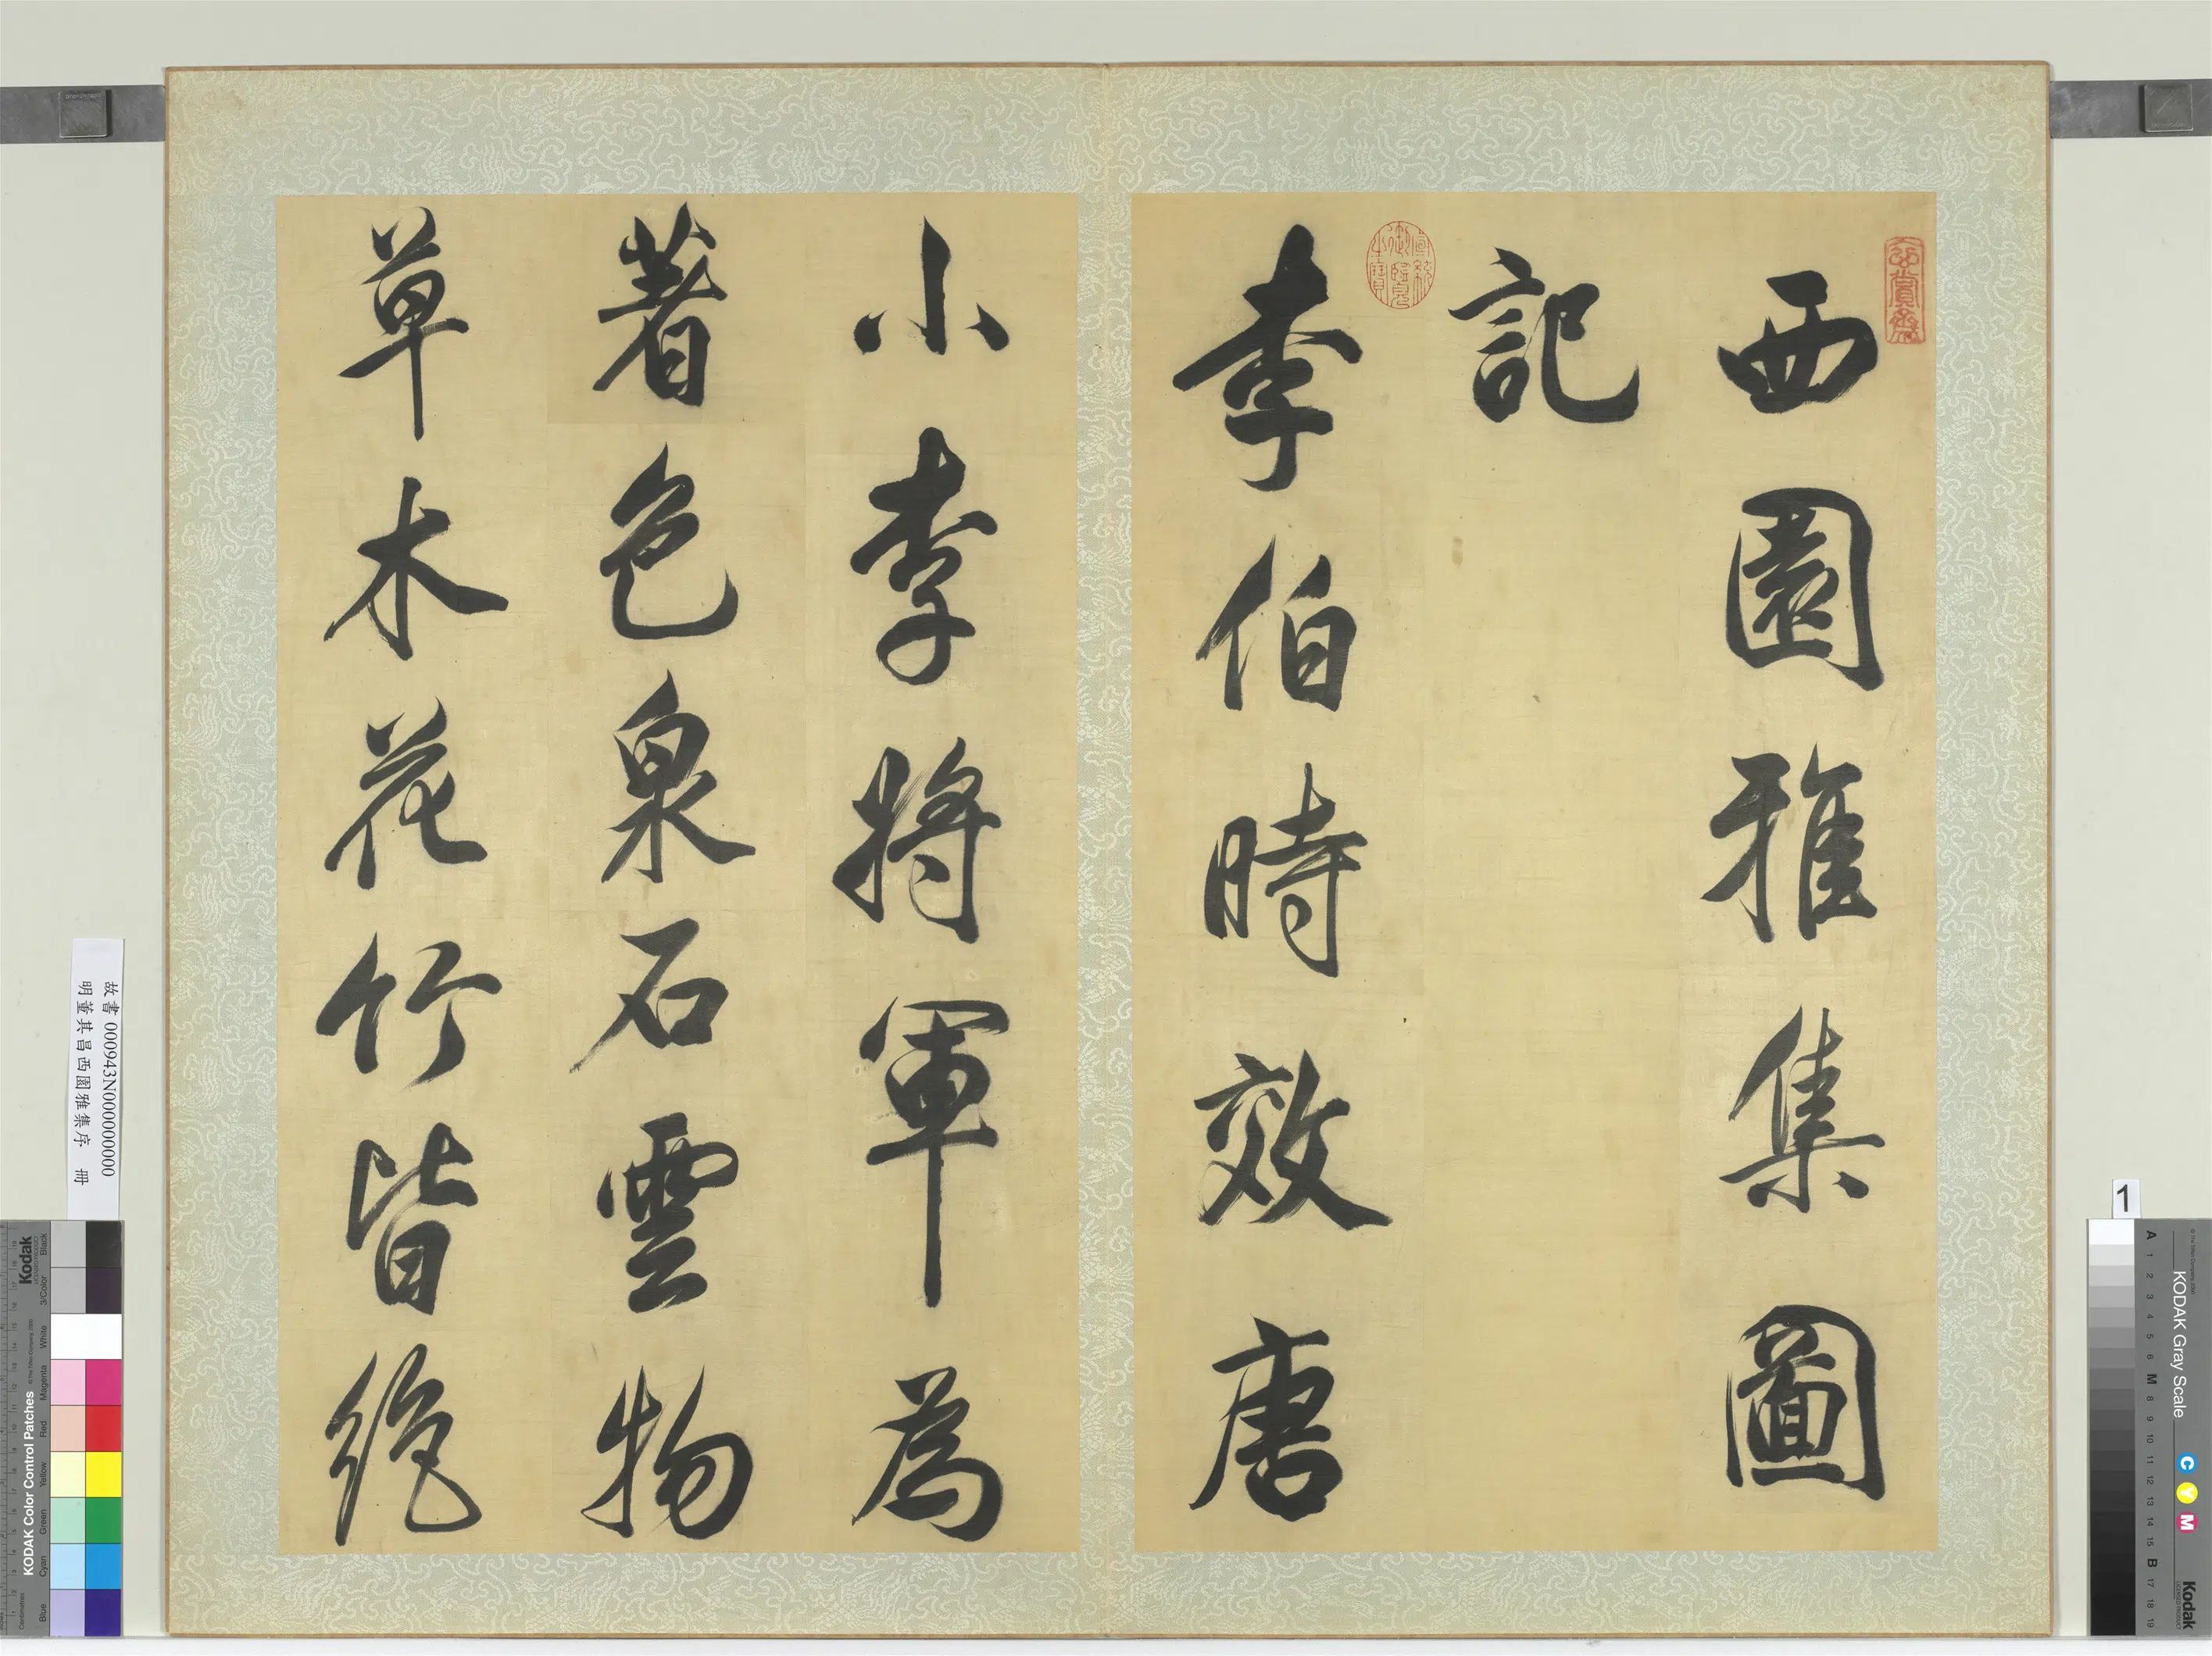 西園雅集圖
記
李伯時效唐
小李將軍為
著色泉石雲物
草木花竹皆絕
玄賞齋
宣統御覽之寶
故書 000943N000000000
明董其昌西園雅集序 冊
1
KODAK Gray Scale
C Y M
Kodak
A 1 2 3 4 5 6 M 8 9 10 11 12 13 14 15 B 17 18 19
KODAK Color Control Patches
Kodak
Blue Cyan Green Yellow Red Magenta White 3/Color Black